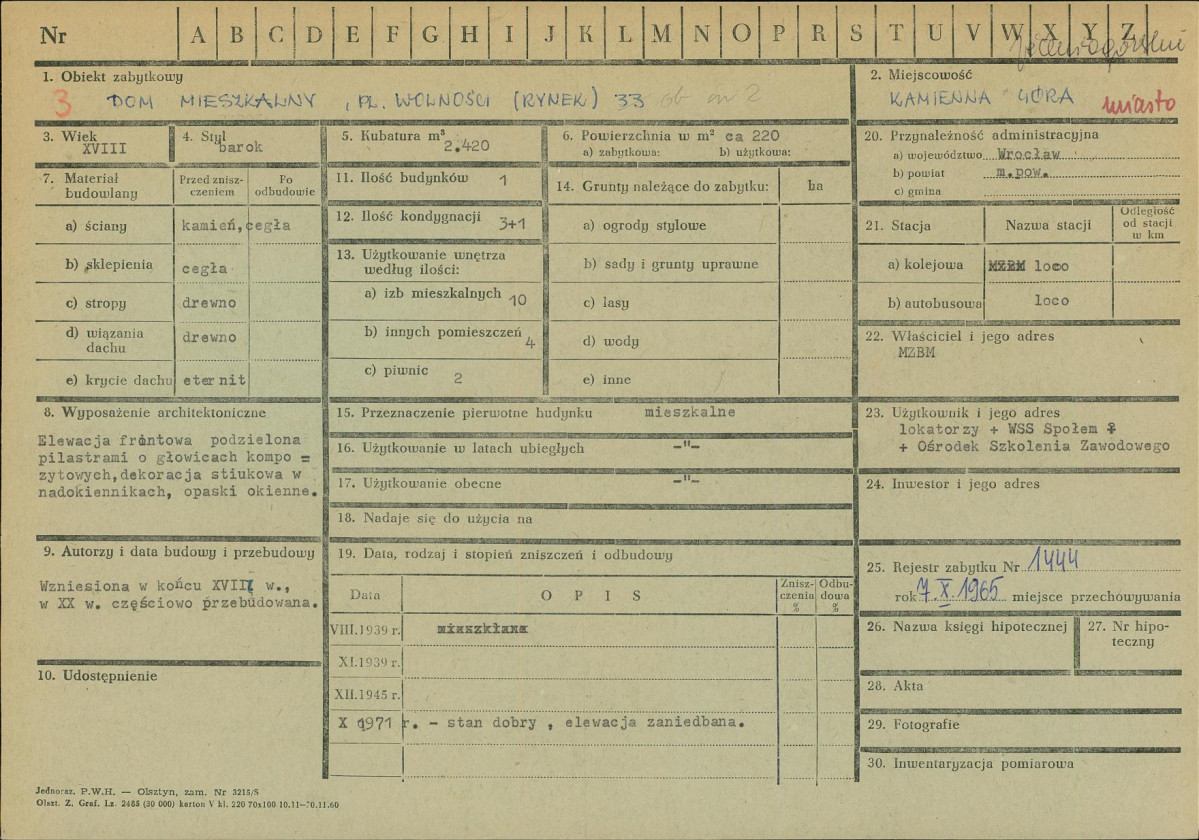 Nr A B C D E F G H I J K L M N O P R S T U V W X Y Z
1. Obiekt zabytkowy
3 DOM MIESZKALNY , PL. WOLNOŚCI (RYNEK) 33 ob nr 2
2. Miejscowość
KAMIENNA GÓRA miasto
3. Wiek
XVIII
4. Styl
barok
5. Kubatura m³
2.420
6. Powierzchnia w m² ca 220
a) zabytkowa: b) użytkowa:
20. Przynależność administracyjna
a) województwo Wrocław
b) powiat m.pow.
c) gmina
7. Materiał budowlany
Przed zniszczeniem
Po odbudowie
a) ściany kamień,cegła
b) sklepienia cegła
c) stropy drewno
d) wiązania dachu drewno
e) krycie dachu eternit
11. Ilość budynków 1
12. Ilość kondygnacji 3+1
13. Użytkowanie wnętrza
według ilości:
a) izb mieszkalnych 10
b) innych pomieszczeń 4
c) piwnic 2
14. Grunty należące do zabytku: ha
a) ogrody stylowe
b) sady i grunty uprawne
c) lasy
d) wody
e) inne
21. Stacja Nazwa stacji Odległość od stacji w km
a) kolejowa MZBM loco
b) autobusowa loco
22. Właściciel i jego adres
MZBM
8. Wyposażenie architektoniczne
Elewacja frontowa podzielona
pilastrami o głowicach kompo =
zytowych,dekoracja stiukowa w
nadokiennikach, opaski okienne.
15. Przeznaczenie pierwotne budynku mieszkalne
16. Użytkowanie w latach ubiegłych -"-
17. Użytkowanie obecne -"-
18. Nadaje się do użycia na
23. Użytkownik i jego adres
lokatorzy + WSS Społem
+ Ośrodek Szkolenia Zawodowego
24. Inwestor i jego adres
9. Autorzy i data budowy i przebudowy
Wzniesiona w końcu XVIII w.,
w XX w. częściowo przebudowana.
10. Udostępnienie
19. Data, rodzaj i stopień zniszczeń i odbudowy
Data O P I S Zniszczenia % Odbudowa %
VIII.1939 r.
XI.1939 r.
XII.1945 r.
X 1971 r. - stan dobry , elewacja zaniedbana.
25. Rejestr zabytku Nr 1444
rok 7.X.1965 miejsce przechowywania
26. Nazwa księgi hipotecznej
27. Nr hipo-
teczny
28. Akta
29. Fotografie
30. Inwentaryzacja pomiarowa
Jednoraz. P.W.H. — Olsztyn, zam. Nr 3215/S
Olszt. Z. Graf. Lz. 2485 (30 000) karton V kl. 220 70x100 10.11—70.11.60